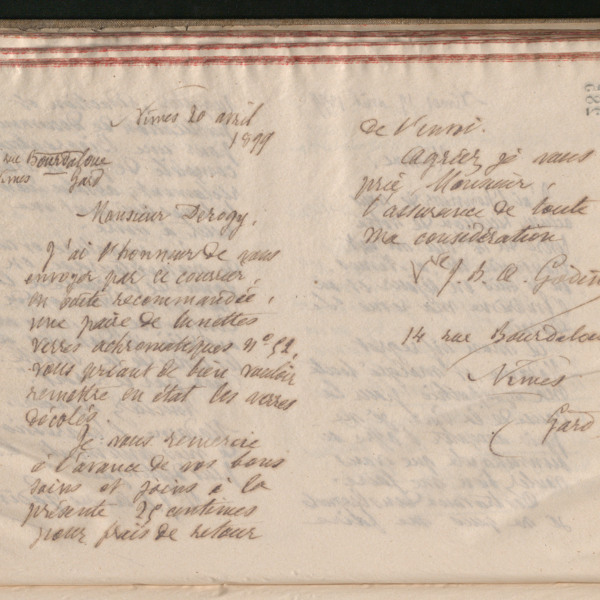 Nîmes 20 avril
1899
rue Bourdaloue
Nîmes Gard
Monsieur Derogy,
J'ai l'honneur de vous
envoyer par ce courrier,
en boîte recommandée,
une paire de lunettes
verres achromatiques n° 52,
vous priant de bien vouloir
remettre en état les verres
décolés.
Je vous remercie
à l'avance de vos bons
soins et joins à la
présente 25 centimes
pour frais de retour
de l'envoi.
Agréez je vous
prie, Monsieur,
l'assurance de toute
ma considération
Vve J. B. A. Godin
14 rue Bourdaloue
Nîmes
Gard
383